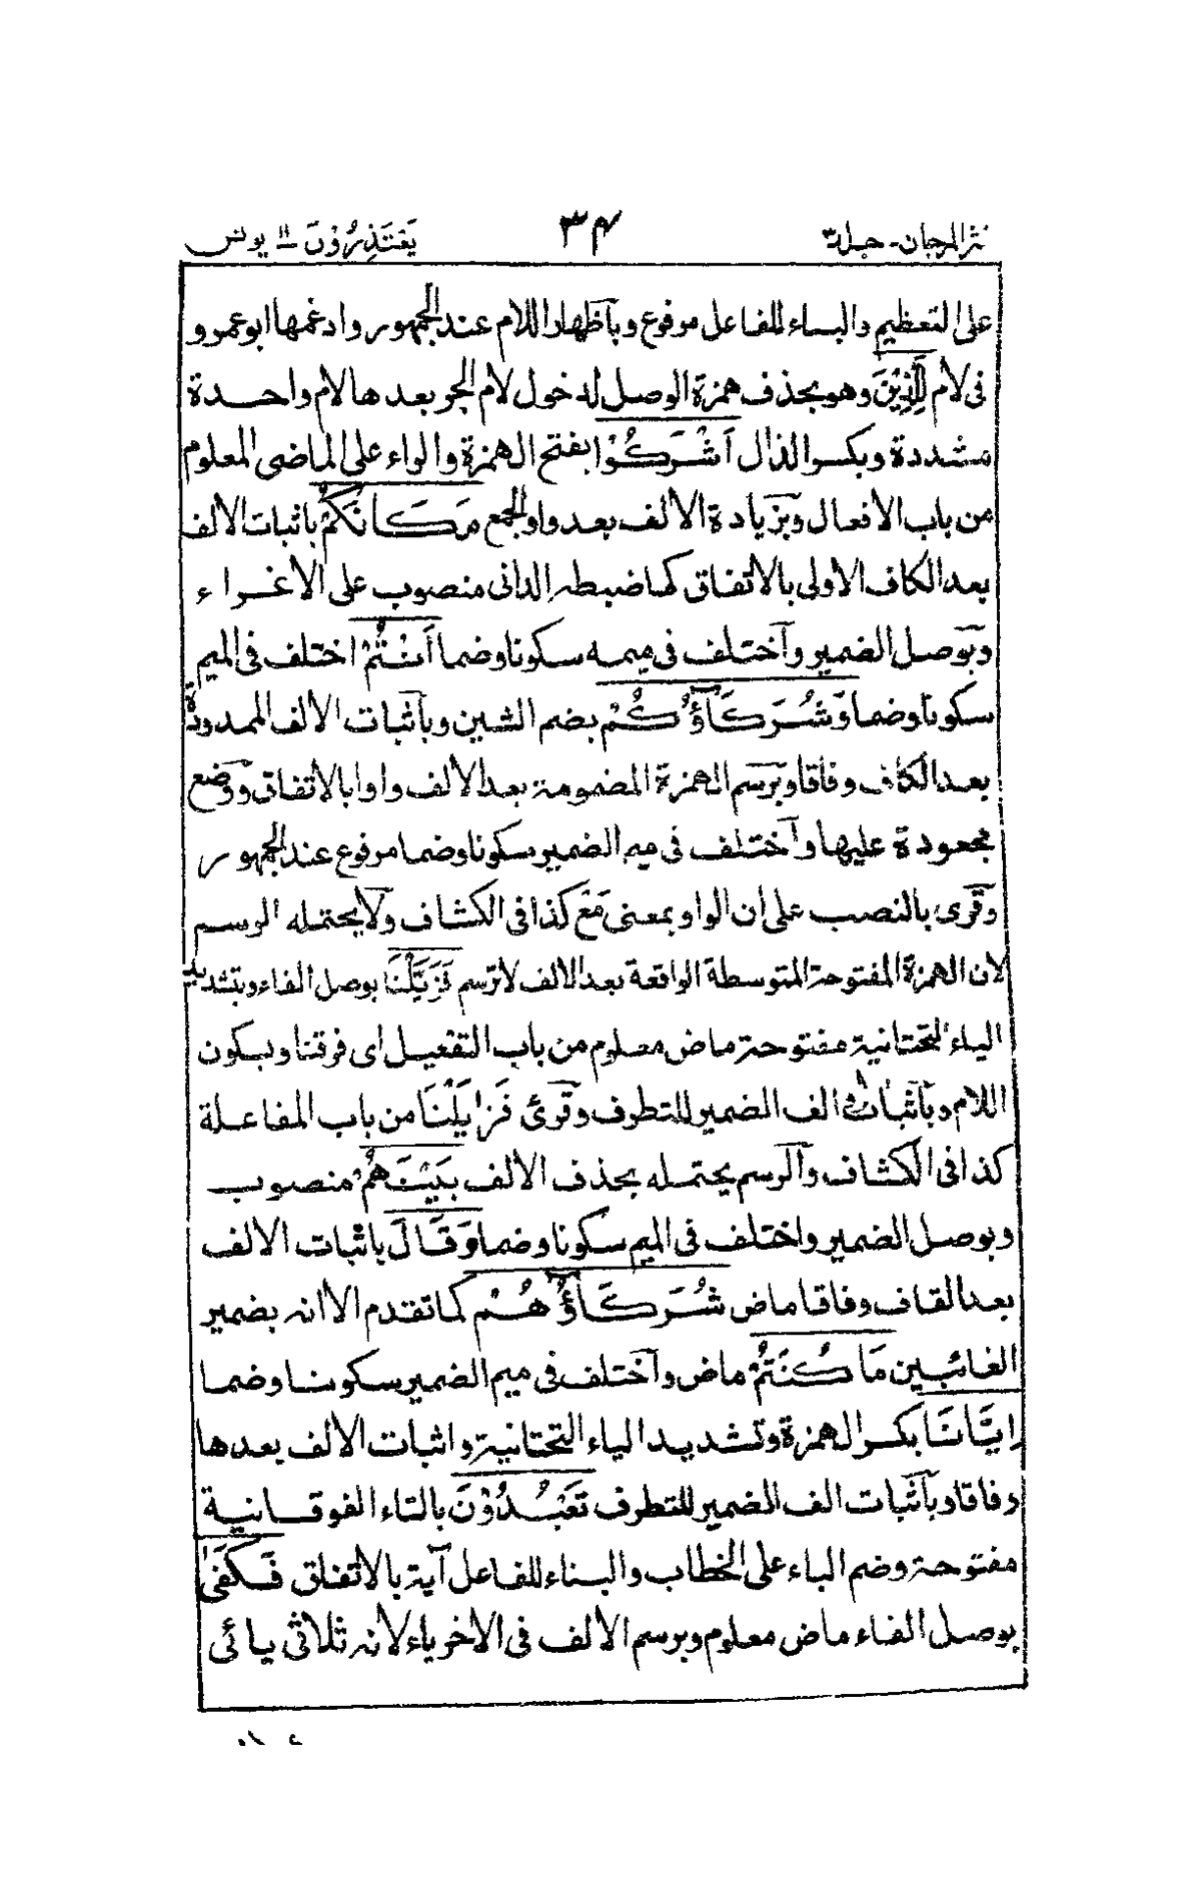 نثر المرجان - جلد ٣ ٣٤ يَعْتَذِرُوْنَ ١١ يونس
على التعظيم والبناء للفاعل مرفوع وبآظهار اللام عند الجمهور وادغمها ابوعمرو
فى لام لِلَّذِيْنَ وهو بحذف همزة الوصل لدخول لام الجر بعدها لام واحدة
مشددة وبكسر الذال اَشْرَكُوْا بفتح الهمزة والراء على الماضى المعلوم
من باب الافعال وبزيادة الالف بعد واو الجمع مَكَانَكُمْ باثبات الالف
بعد الكاف الاولى بالاتفاق كما ضبطه الدانى منصوب على الاغراء
وبوصل الضمير وآختلف فى ميمه سكونا وضما اَنْتُمْ اختلف فى الميم
سكونا وضما وَشُرَكَآؤُكُمْ بضم الشين وبآثبات الالف الممدودة
بعد الكاف وفاقا وبرسم الهمزة المضمومة بعد الالف واوا بالاتفاق ووضع
مجعودة عليها وآختلف فى ميم الضمير سكونا وضما مرفوع عند الجمهور
وقرى بالنصب على ان الواو بمعنى مَعْ كذا فى الكشاف ولا يحتمله الرسم
لان الهمزة المفتوحة المتوسطة الواقعة بعد الالف لا ترسم فَزَيَّلْنَا بوصل الفاء وبتشديد
الياء التحتانية مفتوحة ماض معلوم من باب التفعيل اى فرقنا وبسكون
اللام وبآثبات الف الضمير للتطرف وقرئ فَزَايَلْنَا من باب المفاعلة
كذا فى الكشاف وآلرسم يحتمله بحذف الالف بَيْنَهُمْ منصوب
وبوصل الضمير واختلف فى الميم سكونا وضما وَقَالَ باثبات الالف
بعد القاف وفاقا ماض شُرَكَآؤُهُمْ كما تقدم الا انه بضمير
الغائبين مَا كُنْتُمْ ماض وآختلف فى ميم الضمير سكونا وضما
اِيَّانَا بكسر الهمزة وتشديد الياء التحتانية واثبات الالف بعدها
وفاقا وبآثبات الف الضمير للتطرف تَعْبُدُوْنَ بالتاء الفوقانية
مفتوحة وضم الباء على الخطاب والبناء للفاعل آية بالاتفاق فَكَفٰى
بوصل الفاء ماض معلوم وبرسم الالف فى الاخر ياء لانه ثلاثى يائى